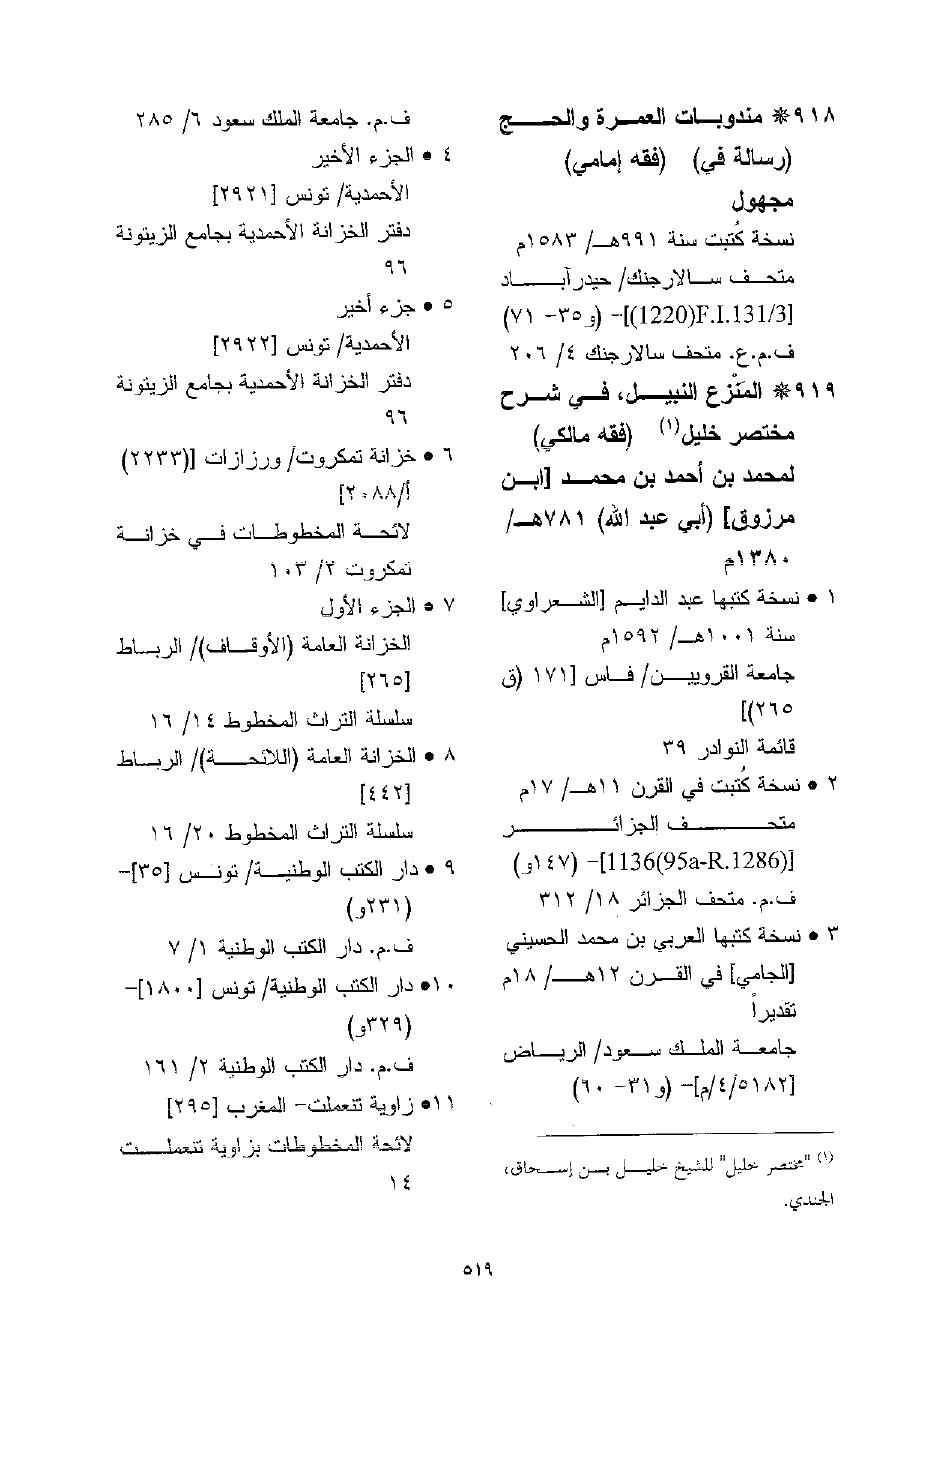 ٩١٨* مندوبات العمرة والحج
(رسالة في) (فقه إمامي)
مجهول
نسخة كُتبت سنة ٩٩١هـ/ ١٥٨٣م
متحف سالارجنك/ حيدرآباد
[(1220)F.I.131/3]- (و٣٥- ٧١)
ف.م.ع. متحف سالارجنك ٤/ ٢٠٦
٩١٩* المَنْزع النبيل، في شرح
مختصر خليل(١) (فقه مالكي)
لمحمد بن أحمد بن محمد [ابن
مرزوق] (أبي عبد الله) ٧٨١هـ/
١٣٨٠م
١ • نسخة كتبها عبد الدايم [الشعراوي]
سنة ١٠٠١هـ/ ١٥٩٢م
جامعة القرويين/ فاس [١٧١ (ق
٢٦٥)]
قائمة النوادر ٣٩
٢ • نسخة كُتبت في القرن ١١هـ/ ١٧م
متحف الجزائر
[1136(95a-R.1286)]- (١٤٧و)
ف.م. متحف الجزائر ١٨/ ٣١٢
٣ • نسخة كتبها العربي بن محمد الحسيني
[الجامي] في القرن ١٢هـ/ ١٨م
تقديراً
جامعة الملك سعود/ الرياض
[٥١٨٢/٤/م]- (و٣١- ٦٠)
(١) "مختصر خليل" للشيخ خليل بن إسحاق،
الجندي.
ف.م. جامعة الملك سعود ٦/ ٢٨٥
٤ • الجزء الأخير
الأحمدية/ تونس [٢٩٢١]
دفتر الخزانة الأحمدية بجامع الزيتونة
٩٦
٥ • جزء أخير
الأحمدية/ تونس [٢٩٢٢]
دفتر الخزانة الأحمدية بجامع الزيتونة
٩٦
٦ • خزانة تمكروت/ ورزازات [(٢٢٣٣)
أ/٢٠٨٨]
لائحة المخطوطات في خزانة
تمكروت ٢/ ١٠٣
٧ • الجزء الأول
الخزانة العامة (الأوقاف)/ الرباط
[٢٦٥]
سلسلة التراث المخطوط ١٤/ ١٦
٨ • الخزانة العامة (اللائحة)/ الرباط
[٤٤٢]
سلسلة التراث المخطوط ٢٠/ ١٦
٩ • دار الكتب الوطنية/ تونس [٣٥]-
(٢٣١و)
ف.م. دار الكتب الوطنية ١/ ٧
١٠• دار الكتب الوطنية/ تونس [١٨٠٠]-
(٣٢٩و)
ف.م. دار الكتب الوطنية ٢/ ١٦١
١١• زاوية تنعملت- المغرب [٢٩٥]
لائحة المخطوطات بزاوية تنعملت
١٤
٥١٩